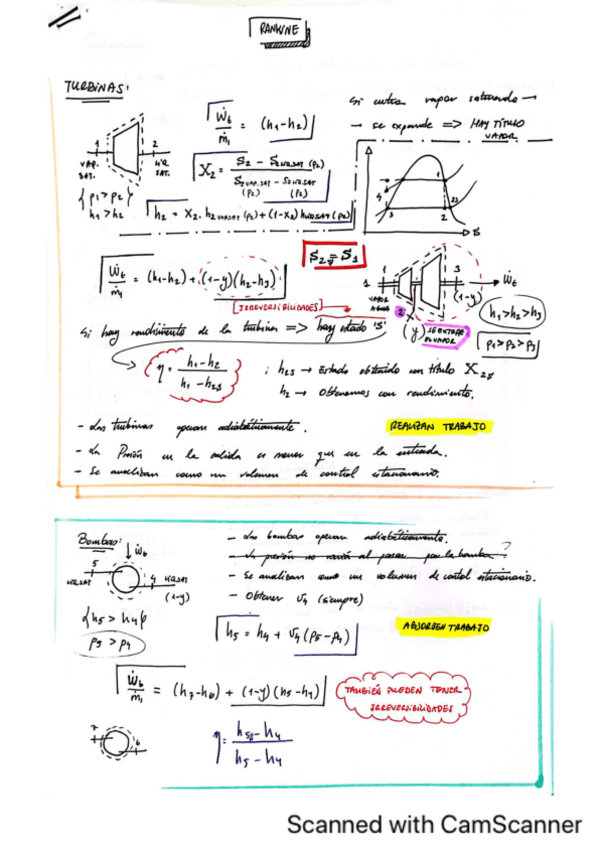 RANKINE
TURBINAS:
Si entra vapor saturado →
→ se expande => HAY TÍTULO
VAPOR
Ẇt / ṁ1 = (h1-h2)
1
2
VAP. SAT.
LIQ. SAT.
{ p1 > p2 }
h1 > h2
X2 = (S2 - S2LIQ.SAT (P2)) / (S2VAP.SAT (P2) - S2LIQ.SAT (P2))
h2 = X2 . h2VAPSAT (P2) + (1-X2) h2LIQSAT (P2)
S2 = S1
Ẇt / ṁ1 = (h1-h2) + (1-y)(h2-h3)
[IRREVERSIBILIDADES]
1
VAPOR
2
3
(1-y)
Ẇt
(y) SE EXTRAE EL VAPOR
h1 > h2 > h3
P1 > P2 > P3
Si hay rendimiento de la turbina => hay estado 'S'
η = (h1 - h2) / (h1 - h2s)
; h2s → Estado obtenido con título X2s
h2 → Obtenemos con rendimiento.
- Las turbinas operan adiabáticamente.
REALIZAN TRABAJO
- La Presión en la salida es menor que en la entrada.
- Se analizan como un volumen de control estacionario.
Bombas:
↓ Ẇb
5
LIQ SAT
4
LIQ.SAT
(1-y)
- Las bombas operan adiabáticamente.
- La presión no varía al pasar por la bomba?
- Se analizan como un volumen de control estacionario.
- Obtener v4 (siempre)
{ h5 > h4
P5 > P4
h5 = h4 + v4 (P5 - P4)
ABSORBEN TRABAJO
Ẇb / ṁ1 = (h7-h6) + (1-y)(h5-h4)
TAMBIÉN PUEDEN TENER
IRREVERSIBILIDADES
7
6
η = (h5s - h4) / (h5 - h4)
Scanned with CamScanner